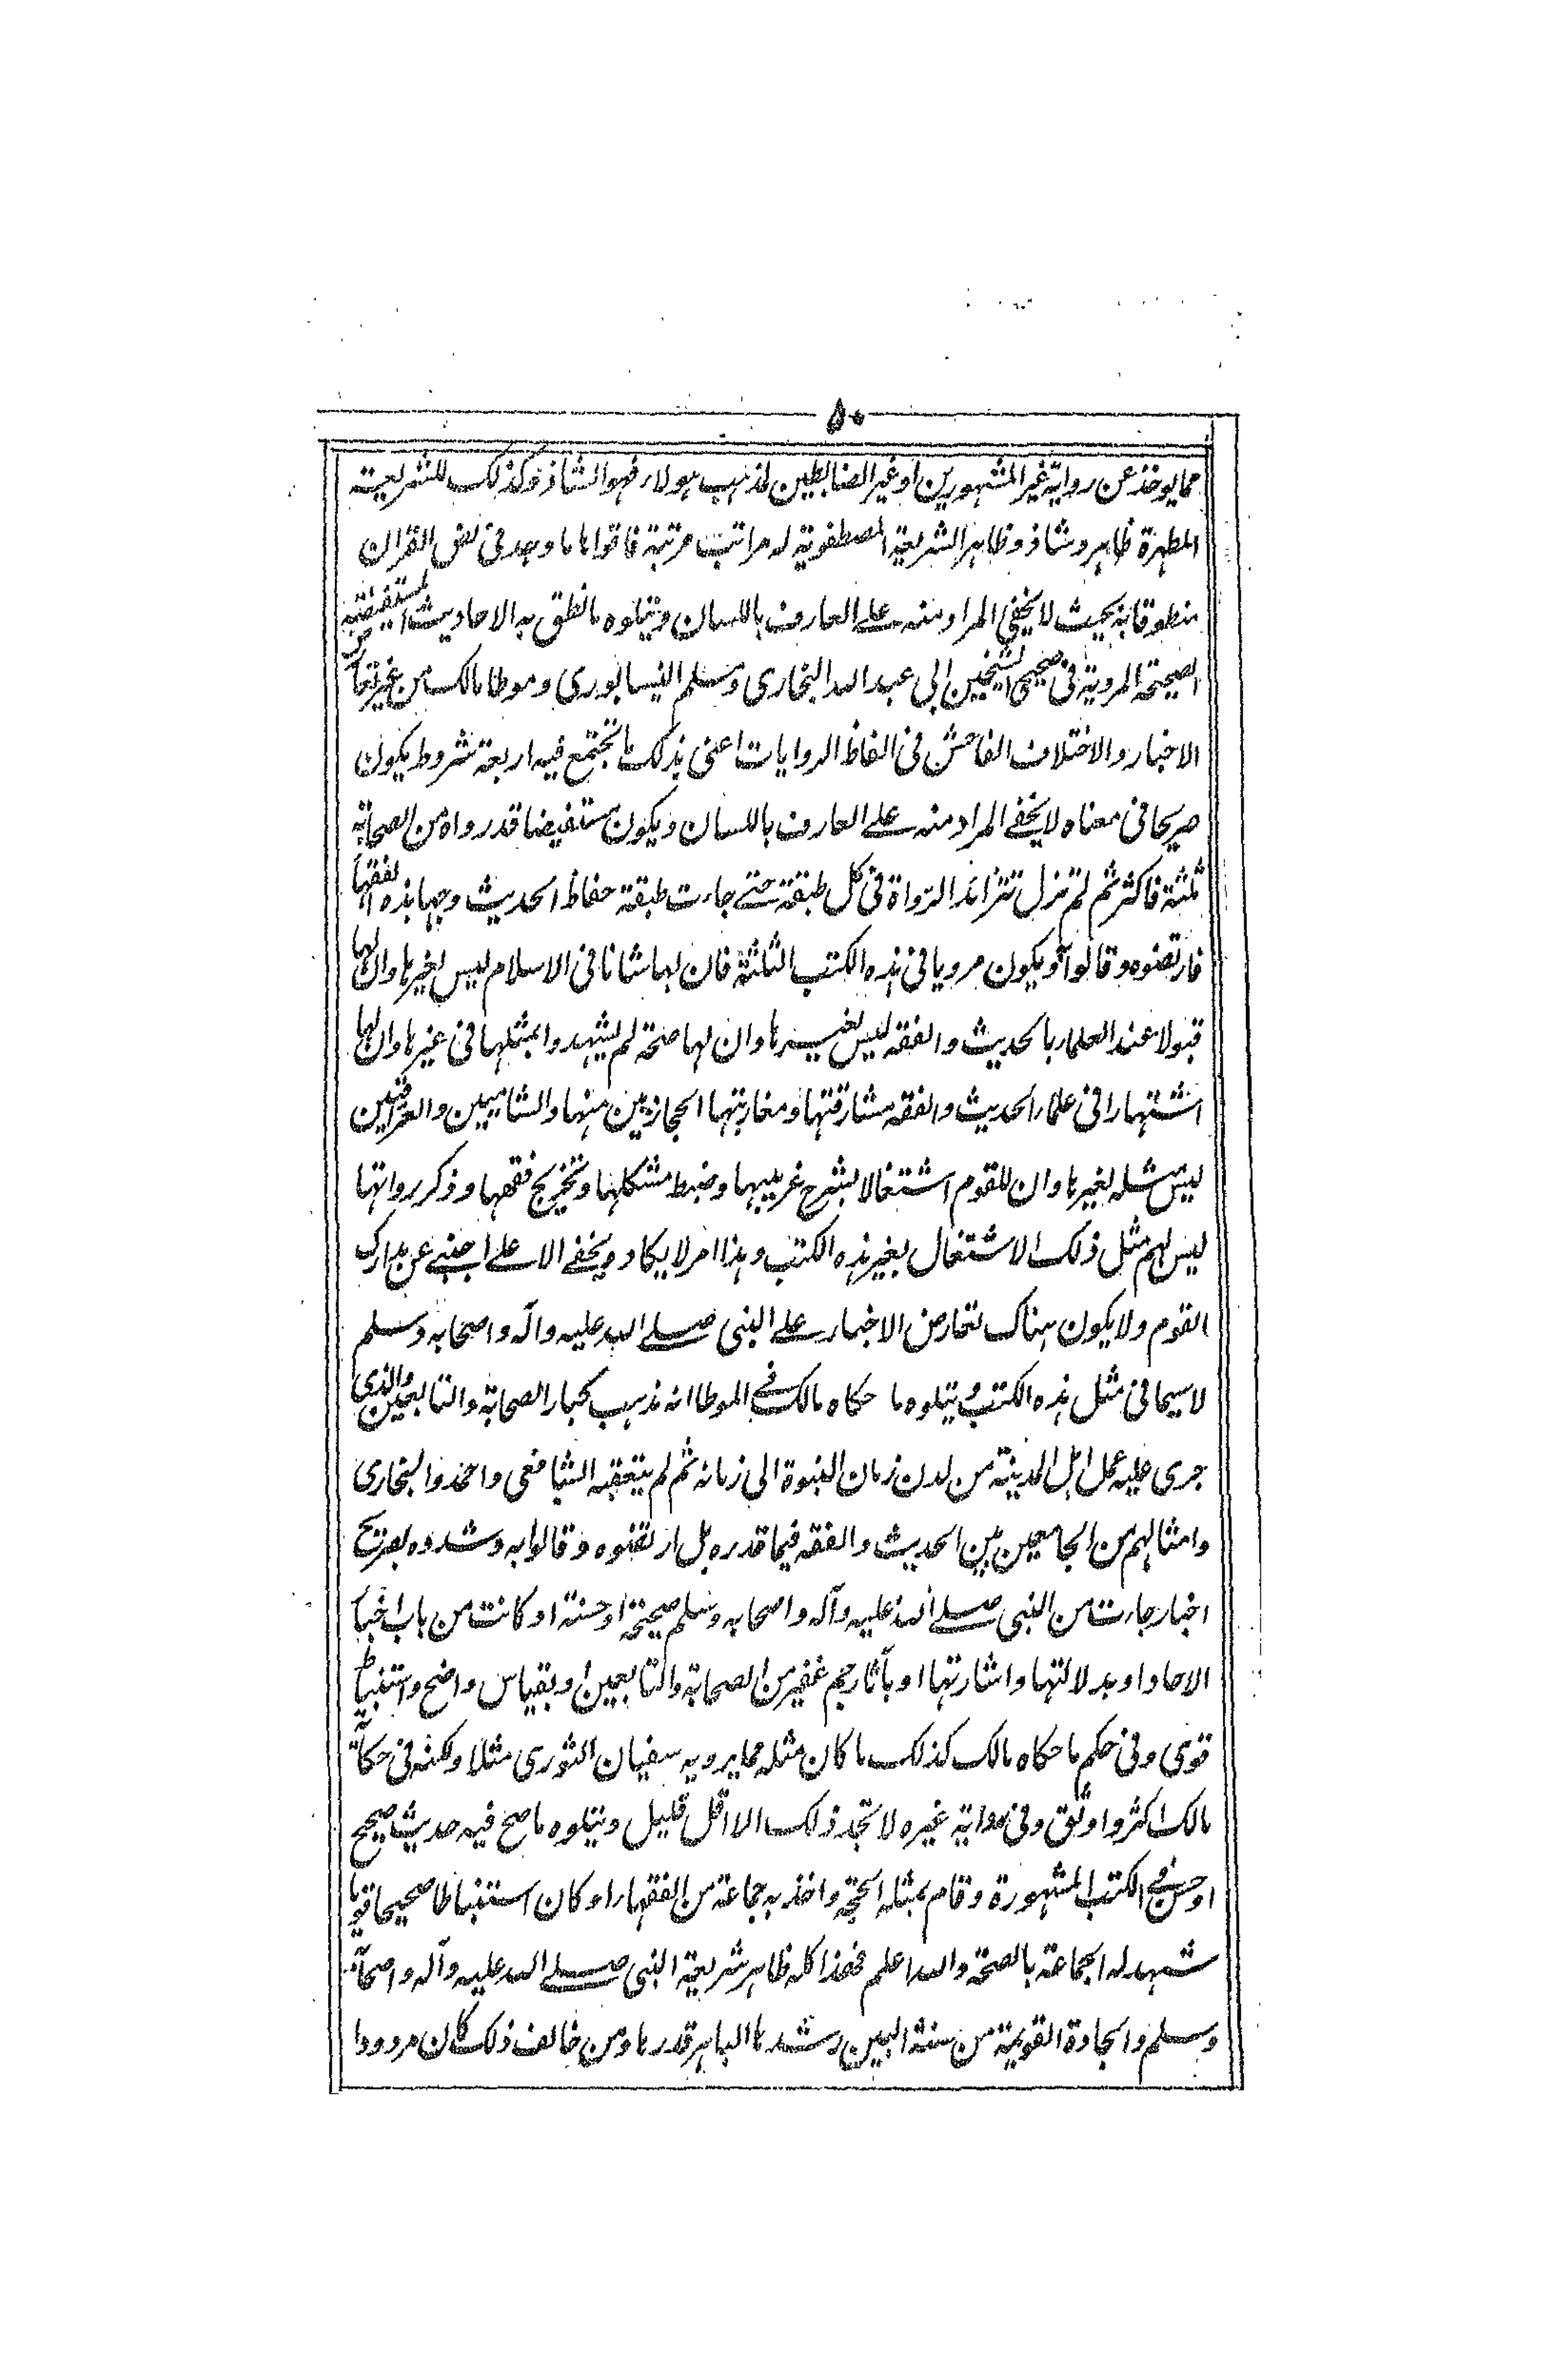 ۵۰
مما یوخذ عن روایة غیر المشهورین او غیر الضابطین لمذهب هولاء فهو الشاذ و کذلک للشریعة
المطهرة ظاهر و شاذ و ظاهر الشریعة المصطفویة له مراتب مرتبة فاقواها ما وجد فی نص القران
منطوقا به بحیث لا یخفی المراد منه علی العارف باللسان و یتلوه ما نطق به الاحادیث المستفیضة
الصحیحة المرویة فی صحیحی الشیخین ابی عبد الله البخاری و مسلم النیسابوری و موطا مالک من غیر تعارض
الاخبار و الاختلاف الفاحش فی الفاظ الروایات اعنی بذلک ما تجتمع فیه اربعة شروط یکون
صریحا فی معناه لا یخفے المراد منه علے العارف باللسان و یکون مستفیضا قد رواه من الصحابة
ثلثة فاکثر ثم لم تزل تتزائد الرواة فی کل طبقة حتے جاءت طبقة حفاظ الحدیث و جهابذه الفقهاء
فارتضوه و قالوا به و یکون مرویا فی هذه الکتب الثلثة فان لها شانا فی الاسلام لیس لغیرها و ان لها
قبولا عند العلماء بالحدیث و الفقه لیس لغیرها و ان لها صحة لم یشهدوا بمثلها فی غیرها و ان لها
اشتهارا فی علماء الحدیث و الفقه مشارقتها و مغاربتها الحجازیین منها و الشامیین و العراقیین
لیس مثله لغیرها و ان للقوم اشتغالا بشرح غریبها و ضبط مشکلها و تخریج فقهها و ذکر رواتها
لیس لهم مثل ذلک الاشتغال بغیر هذه الکتب و هذا امر لا یکاد یخفے الا علے اجنبے عن مدارک
القوم و لا یکون هناک تعارض الاخبار علے النبی صلے الله علیه و آله و اصحابه و سلم
لاسیما فی مثل هذه الکتب و یتلوه ما حکاه مالک فے الموطا انه مذهب کبار الصحابة و التابعین و الذی
جری علیه عمل اهل المدینة من لدن زمان النبوة الی زمانه ثم لم یتعقبه الشافعی و احمد و البخاری
و امثالهم من الجامعین بین الحدیث و الفقه فیما قدره بل ارتضوه و قالوا به و شدوه بصریح
اخبار جاءت من النبی صلے الله علیه و آله و اصحابه و سلم صحیحة او حسنة او کانت من باب اخبار
الاحاد او بدلالتها و اشارتها او بآثار جم غفیر من الصحابة و التابعین او بقیاس واضح و استنباط
قوی و فی حکم ما حکاه مالک کذلک ما کان مثله مما یرویه سفیان الثوری مثلا و لکنه فی حکایة
مالک اکثر و اوثق و فی روایة غیره لا تجد ذلک الا اقل قلیل و یتلوه ما صح فیه حدیث صحیح
او حسن فے الکتب المشهورة و قام بمثله الحجة و اخذ به جماعة من الفقهاء او کان استنباطا صحیحا قویا
شهد له الجماعة بالصحة و الله اعلم فهذا کله ظاهر شریعة النبی صلے الله علیه و آله و اصحابه
و سلم و الجادة القویمة من سنته البین رشدها الباهر قدرها و من خالف ذلک کان مردودا